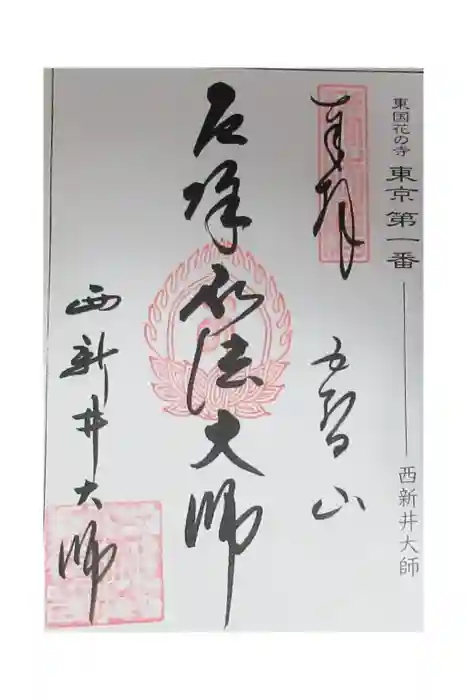 東国花の寺 東京 第一番 ―― 西新井大師
奉拝
五智山
厄除弘法大師
西新井大師